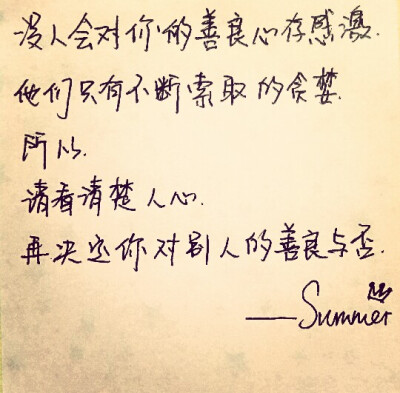 没人会对你的善良心存感激.
他们只有不断索取的贪婪.
所以.
请看清楚人心.
再决定你对别人的善良与否.
——Summer